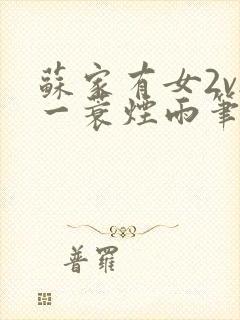 蘇家有女2v
一蓑煙雨筆
普羅